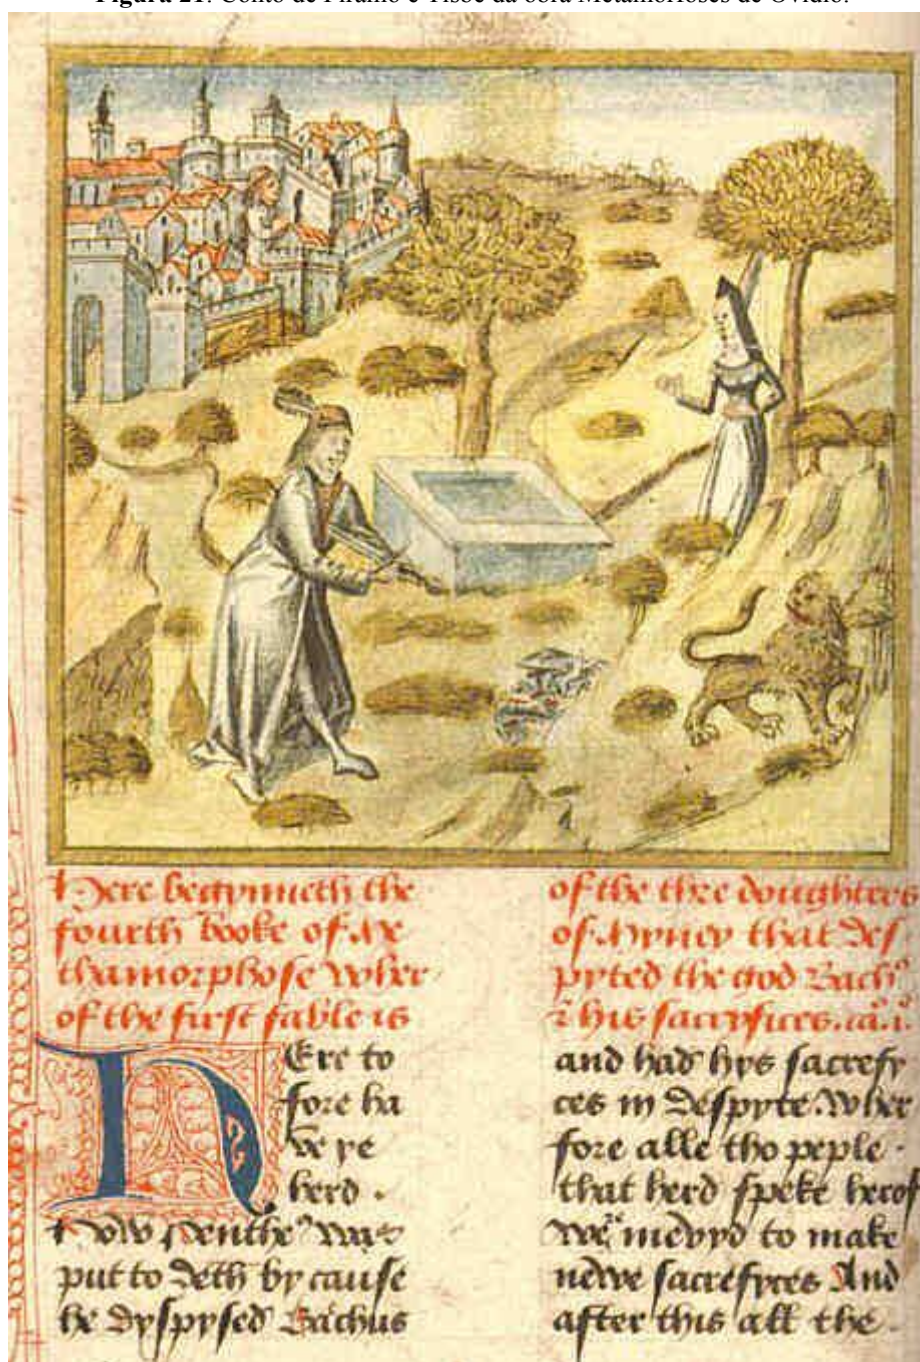 Figura 21. Conto de Píramo e Tisbe da obra Metamorfoses de Ovídio.
Here begynneth the
fourth booke of Me
thamorphose wher
of the first fable is
HEre to
fore ha
ve ye
herd .
how Penthe' was
put to deth by cause
he dyspysed Bachus
of the thre doughtres
of Myney that des
pyted the god Bach'
& his sacryfices. ca. i.
and had hys sacrefy
ces in despyte. wher
fore alle tho peple
that herd speke herof
wer mevyd to make
newe sacrefyces And
after this all the